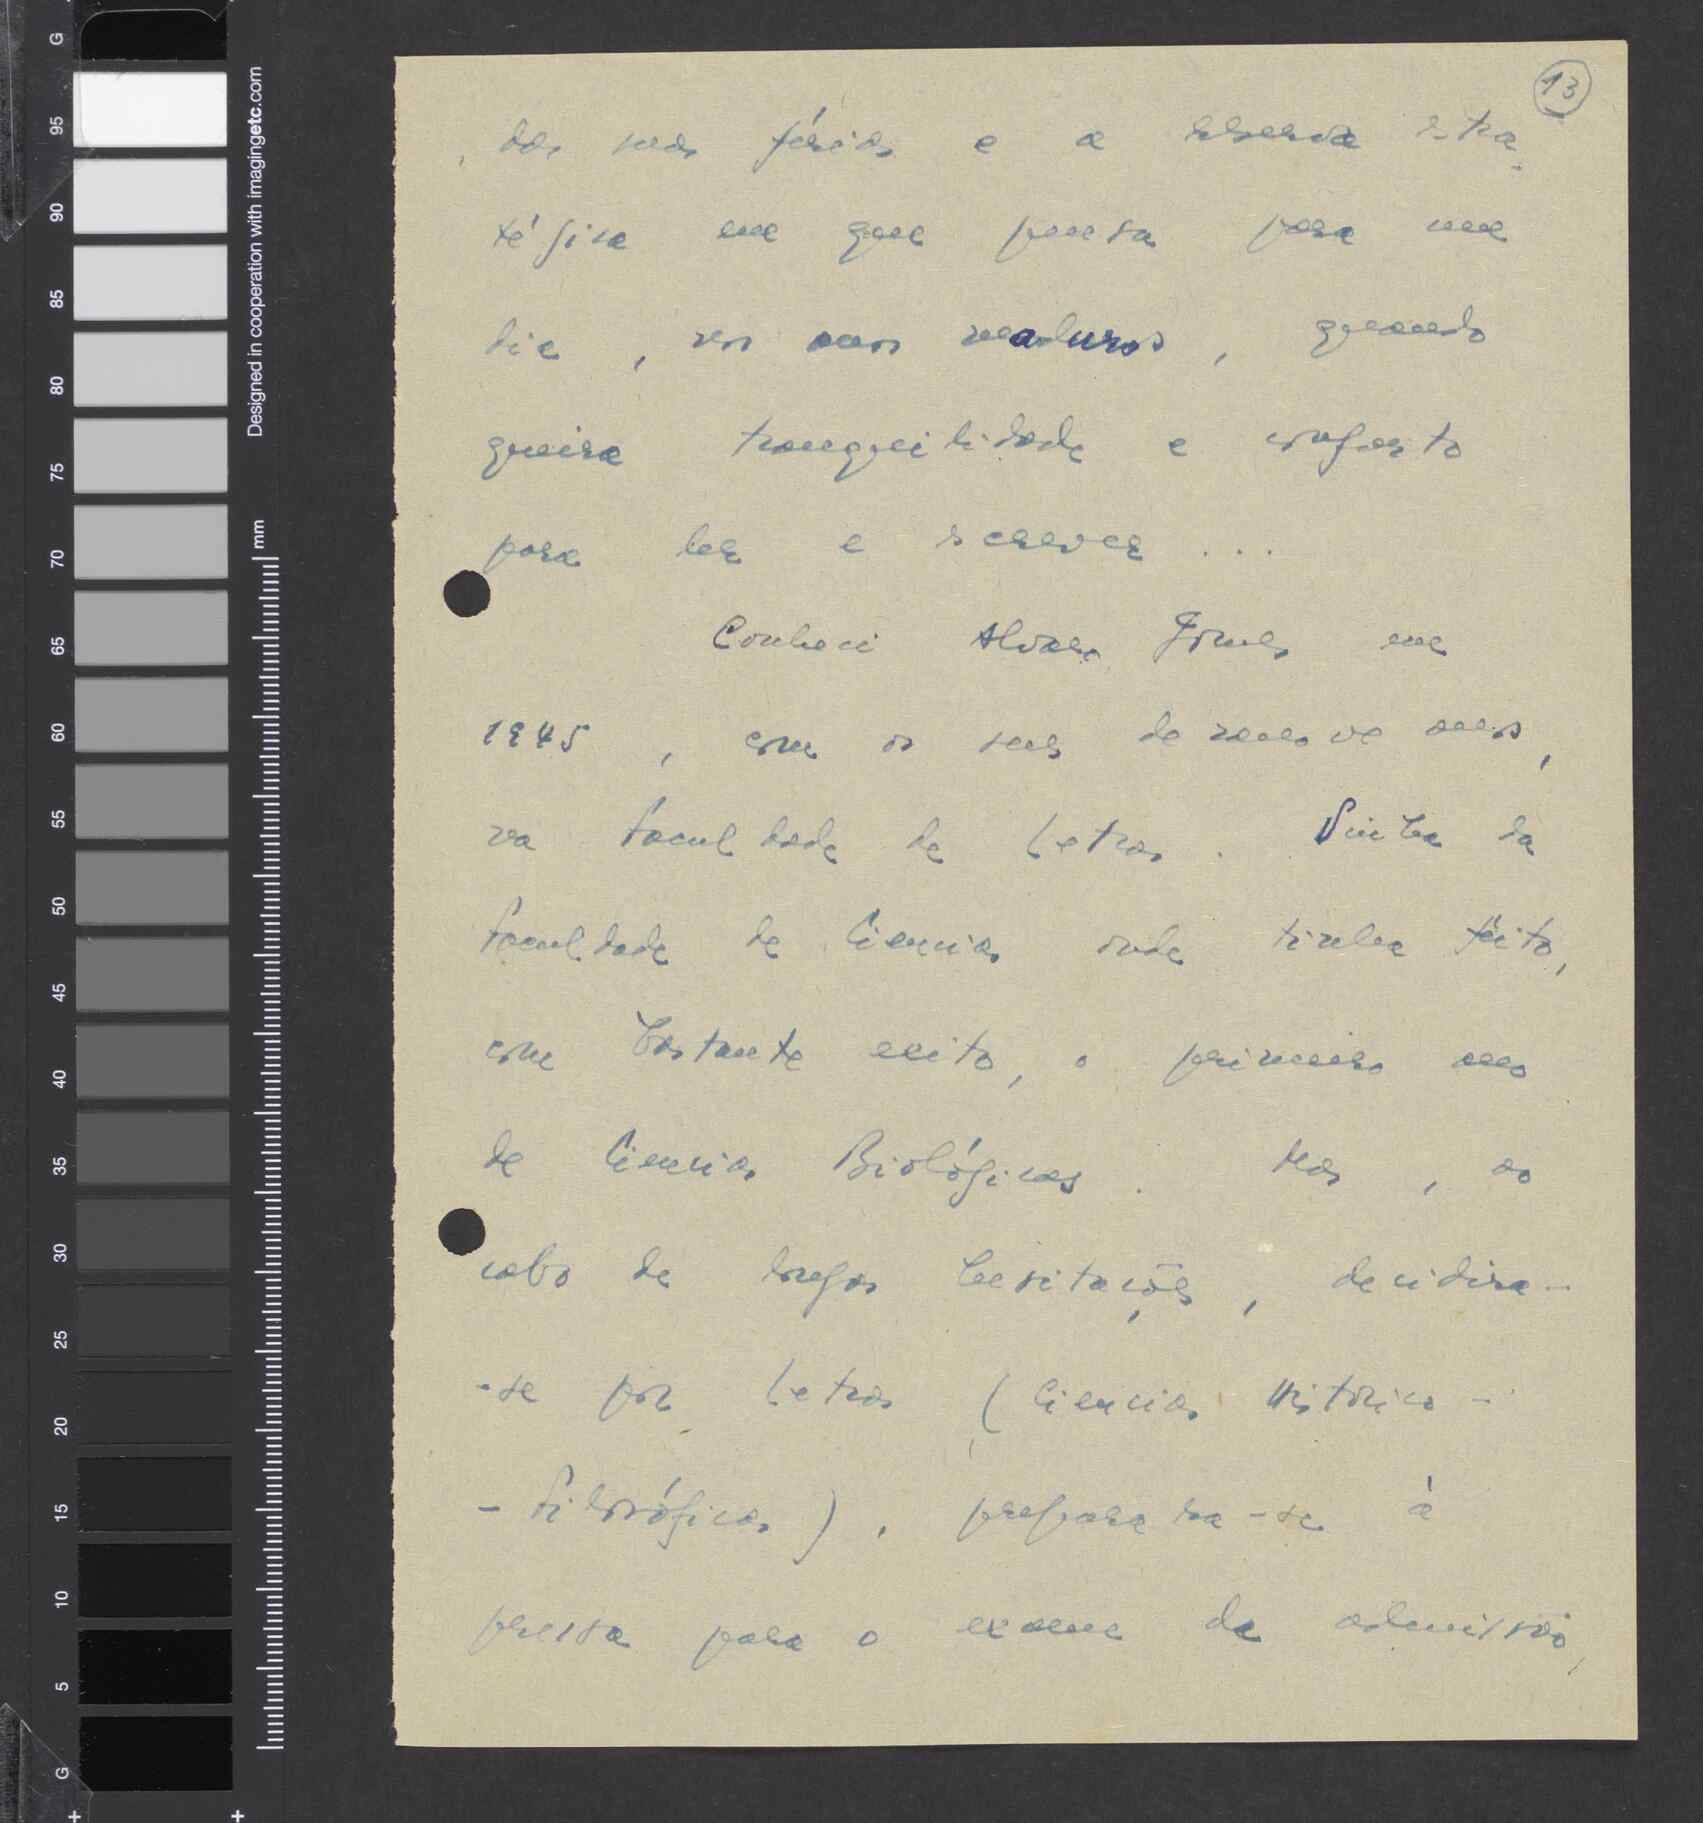 13
das suas férias e a reserva estra-
tégica em que pensa para um
dia, nos anos maduros, quando
queira tranquilidade e conforto
para ler e escrever ...
Conheci Alvaro Gomes em
1945, com os seus dezanove anos,
na Faculdade de Letras. Vinha da
Faculdade de Ciencias onde tinha feito,
com bastante exito, o primeiro ano
de Ciencias Biológicas. Mas, ao
cabo de longas hesitações, decidira-
-se por Letras (Ciencias Historico-
-Filosóficas), preparara-se à
pressa para o exame de admissão,
G
95
90
85
80
75
70
65
60
55
50
45
40
35
30
25
20
15
10
5
G
Designed in cooperation with imagingetc.com
mm